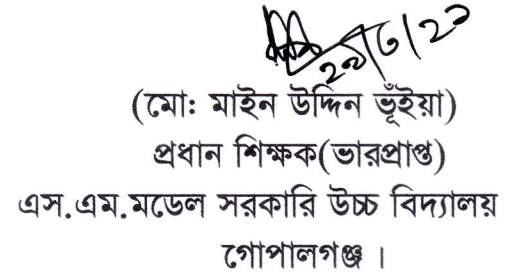 ২৯/৩/২১
(মো: মাইন উদ্দিন ভূঁইয়া)
প্রধান শিক্ষক(ভারপ্রাপ্ত)
এস.এম.মডেল সরকারি উচ্চ বিদ্যালয়
গোপালগঞ্জ ।